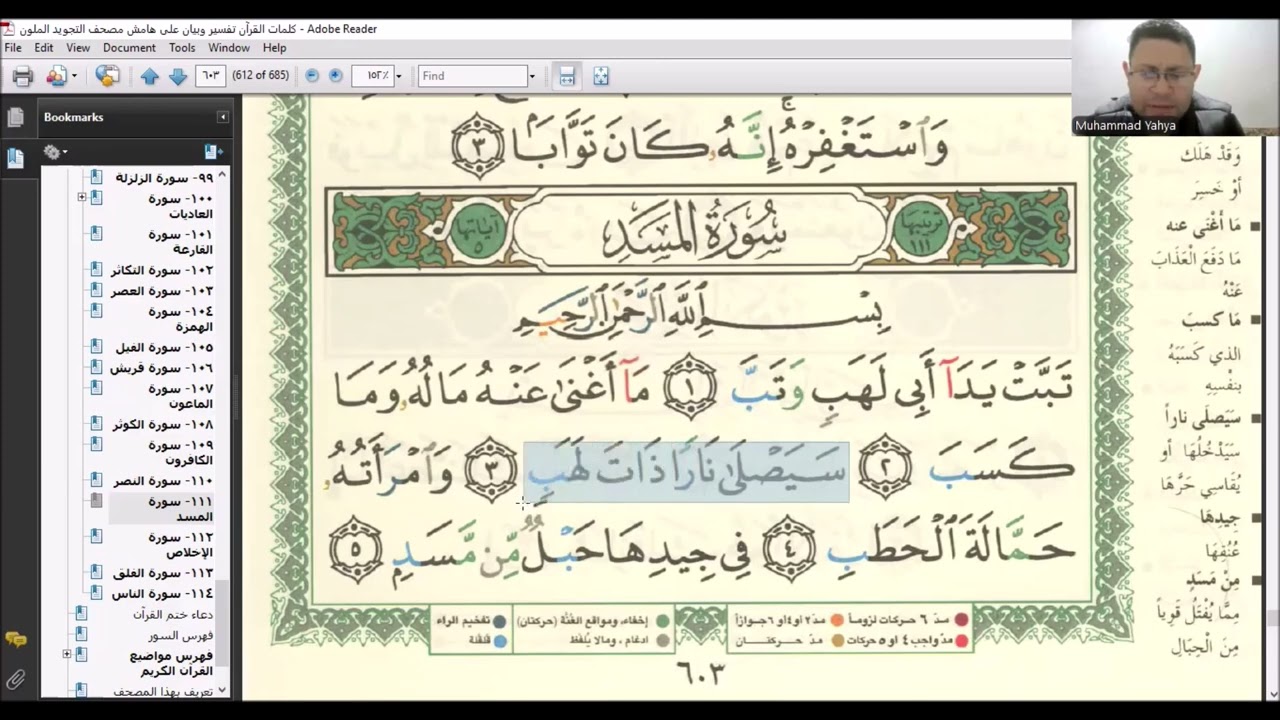 كلمات القرآن تفسير وبيان على هامش مصحف التجويد الملون - Adobe Reader
File Edit View Document Tools Window Help
٦٠٣ (612 of 685) ١٥٢٪ Find
Muhammad Yahya
Bookmarks
٩٩- سورة الزلزلة
١٠٠- سورة
العاديات
١٠١- سورة
القارعة
١٠٢- سورة التكاثر
١٠٣- سورة العصر
١٠٤- سورة
الهمزة
١٠٥- سورة الفيل
١٠٦- سورة قريش
١٠٧- سورة
الماعون
١٠٨- سورة الكوثر
١٠٩- سورة
الكافرون
١١٠- سورة النصر
١١١- سورة
المسد
١١٢- سورة
الإخلاص
١١٣- سورة الفلق
١١٤- سورة الناس
دعاء ختم القرآن
فهرس السور
فهرس مواضيع
القرآن الكريم
تعريف بهذا المصحف
وَٱسْتَغْفِرْهُ ۚ إِنَّهُۥ كَانَ تَوَّابًۢا ٣
ترتيبها ١١١ سُورَةُ المَسَدِ آياتها ٥
بِسْمِ ٱللَّهِ ٱلرَّحْمَٰنِ ٱلرَّحِيمِ
تَبَّتْ يَدَآ أَبِى لَهَبٍ وَتَبَّ ١ مَآ أَغْنَىٰ عَنْهُ مَالُهُۥ وَمَا
كَسَبَ ٢ سَيَصْلَىٰ نَارًا ذَاتَ لَهَبٍ ٣ وَٱمْرَأَتُهُۥ
حَمَّالَةَ ٱلْحَطَبِ ٤ فِى جِيدِهَا حَبْلٌ مِّن مَّسَدٍ ٥
مدّ ٦ حركات لزوماً مدّ ٢ او ٤ او ٦ جوازاً إخفاء، ومواقع الغُنَّة (حركتان) تفخيم الراء
مدّ واجب ٤ او ٥ حركات مدّ حركتان ادغام ، ومالا يُلفَظ قلقلة
٦٠٣
وَقَدْ هَلَكَ
أوْ خَسِرَ
مَا أَغْنَى عنه
مَا دَفَعَ الْعَذَابَ
عَنْهُ
مَا كسبَ
الذي كَسَبَهُ
بِنفْسِهِ
سَيَصلَى ناراً
سَيَدْخُلُهَا أو
يُقَاسِي حَرَّهَا
جيدِهَا
عُنُقِهَا
مِنْ مَسَدٍ
مِمَّا يُفْتَلُ قوياً
مِنَ الْحِبَالِ